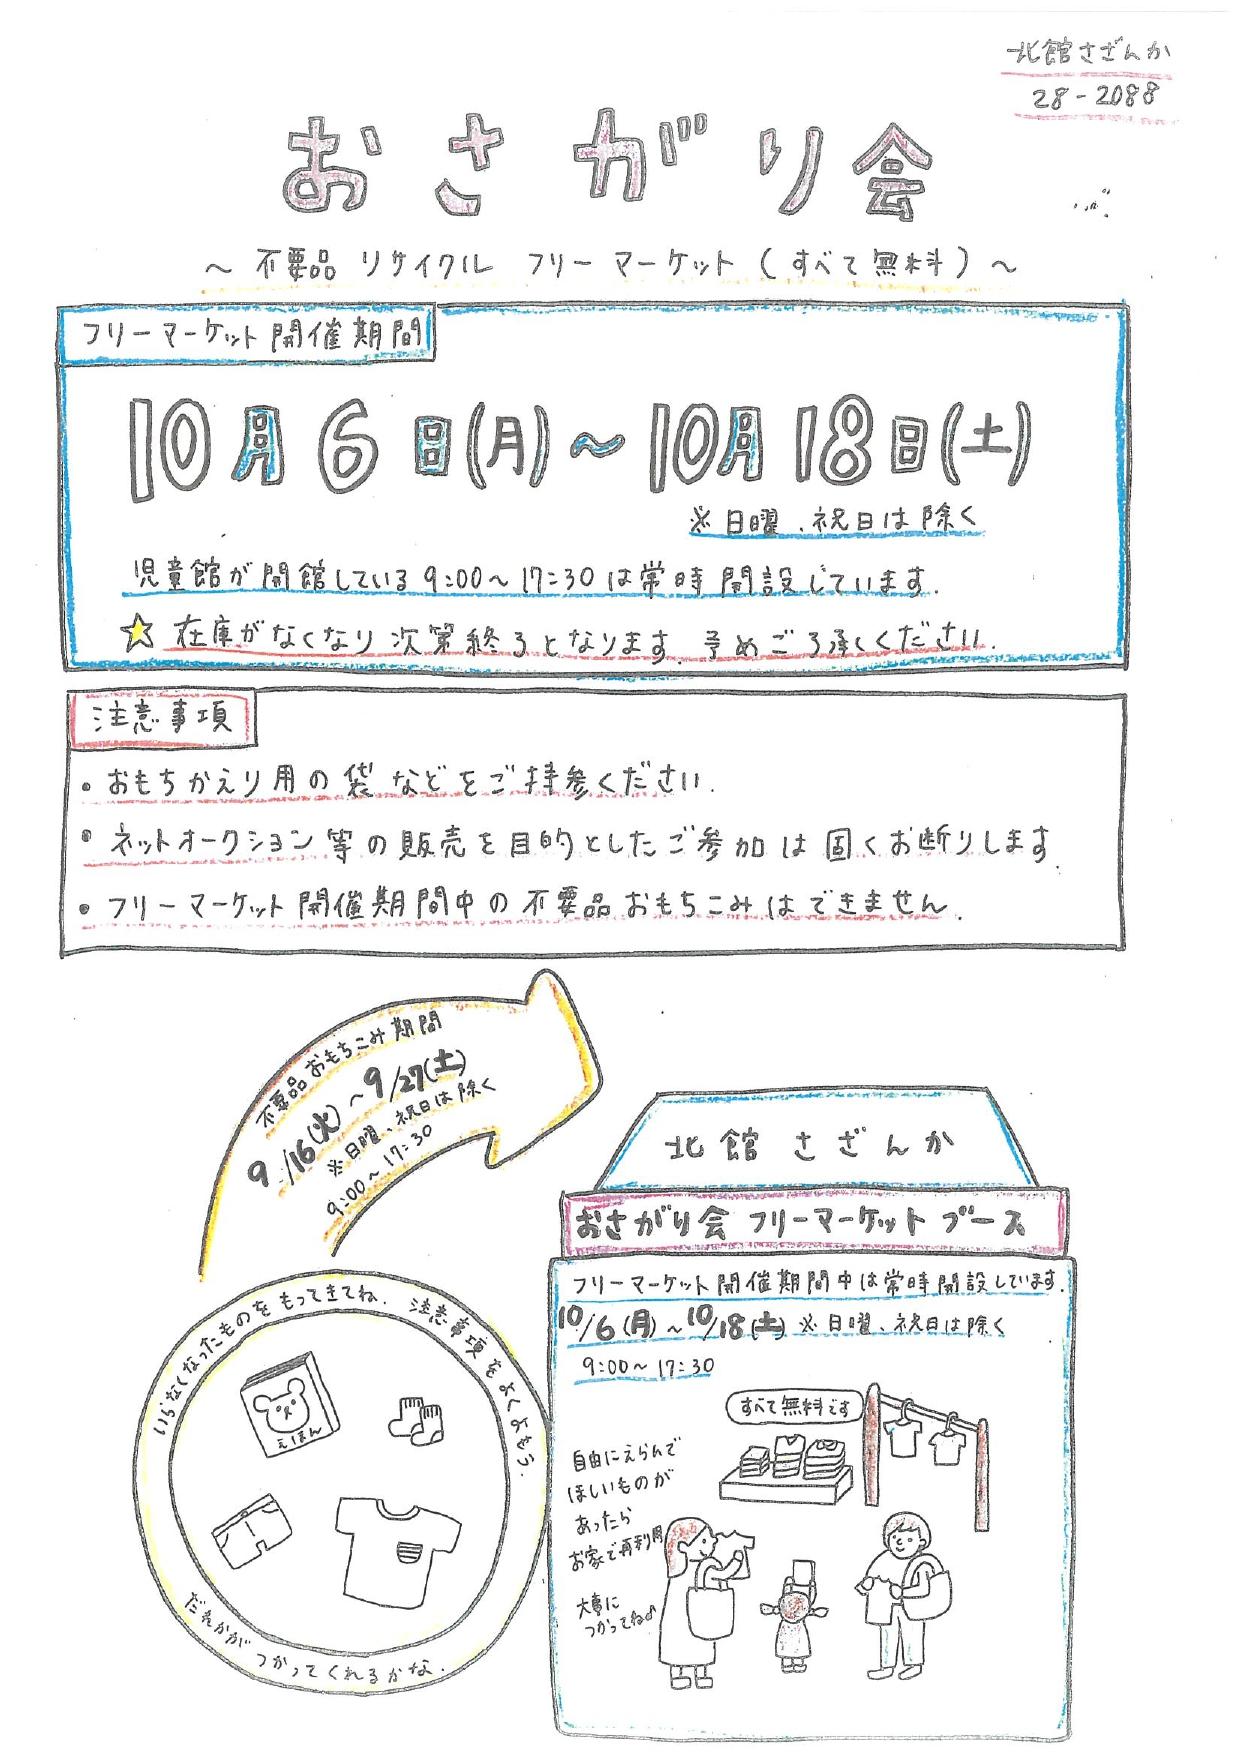 北館さざんか
28-2088
おさがり会
～ 不要品 リサイクル フリーマーケット (すべて無料) ～
フリーマーケット開催期間
10月6日(月)～10月18日(土)
※日曜、祝日は除く
児童館が開館している9:00～17:30は常時開設しています。
☆ 在庫がなくなり次第終ろとなります。予めごろ承ください。
注意事項
・おもちかえり用の袋などをご持参ください。
・ネットオークション等の販売を目的としたご参加は固くお断りします。
・フリーマーケット開催期間中の不要品おもちこみはできません。
不要品おもちこみ期間
9/16(火)～9/27(土)
※日曜、祝日は除く
9:00～17:30
いらなくなったものをもってきてね。注意事項をよくよもう。
えほん
だれかがつかってくれるかな。
北館さざんか
おさがり会フリーマーケットブース
フリーマーケット開催期間中は常時開設しています。
10/6(月)～10/18(土) ※日曜、祝日は除く
9:00～17:30
すべて無料です
自由にえらんで
ほしいものが
あったら
お家で再利用
大事に
つかってね♪